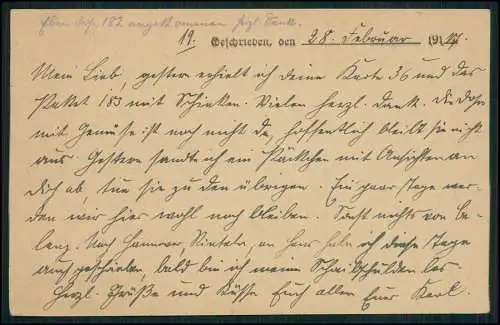 Eben Krp. 182 angekommen. Hzl. Dank.
19. Geschrieben, den 28. Februar 1917.
Mein Lieb, gestern erhielt ich deine Karte 36 und das
Paket 183 mit Schinken. Vielen herzl. Dank. Die Dose
mit Gemüse ist noch nicht da, hoffentlich bleibt sie nicht
aus. Gestern sandte ich ein Päckchen mit Ansichten an
Dich ab, tue sie zu den übrigen. Ein paar Tage wer-
den wir hier wohl noch bleiben. Sonst nichts von Be-
lang. Nach Hannover, an Hans habe ich diese Tage
auch geschrieben, bald bin ich meine Schreibschulden los.
Herzl. Grüße und Küsse Euch allen Euer Karl.